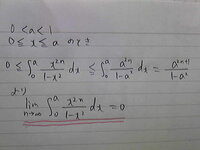 0 < a < 1
0 ≦ x ≦ a のとき
0 ≦ ∫₀ᵃ x²ⁿ/(1-x²) dx ≦ ∫₀ᵃ a²ⁿ/(1-a²) dx = a²ⁿ⁺¹/(1-a²)
より
lim n→∞ ∫₀ᵃ x²ⁿ/(1-x²) dx = 0